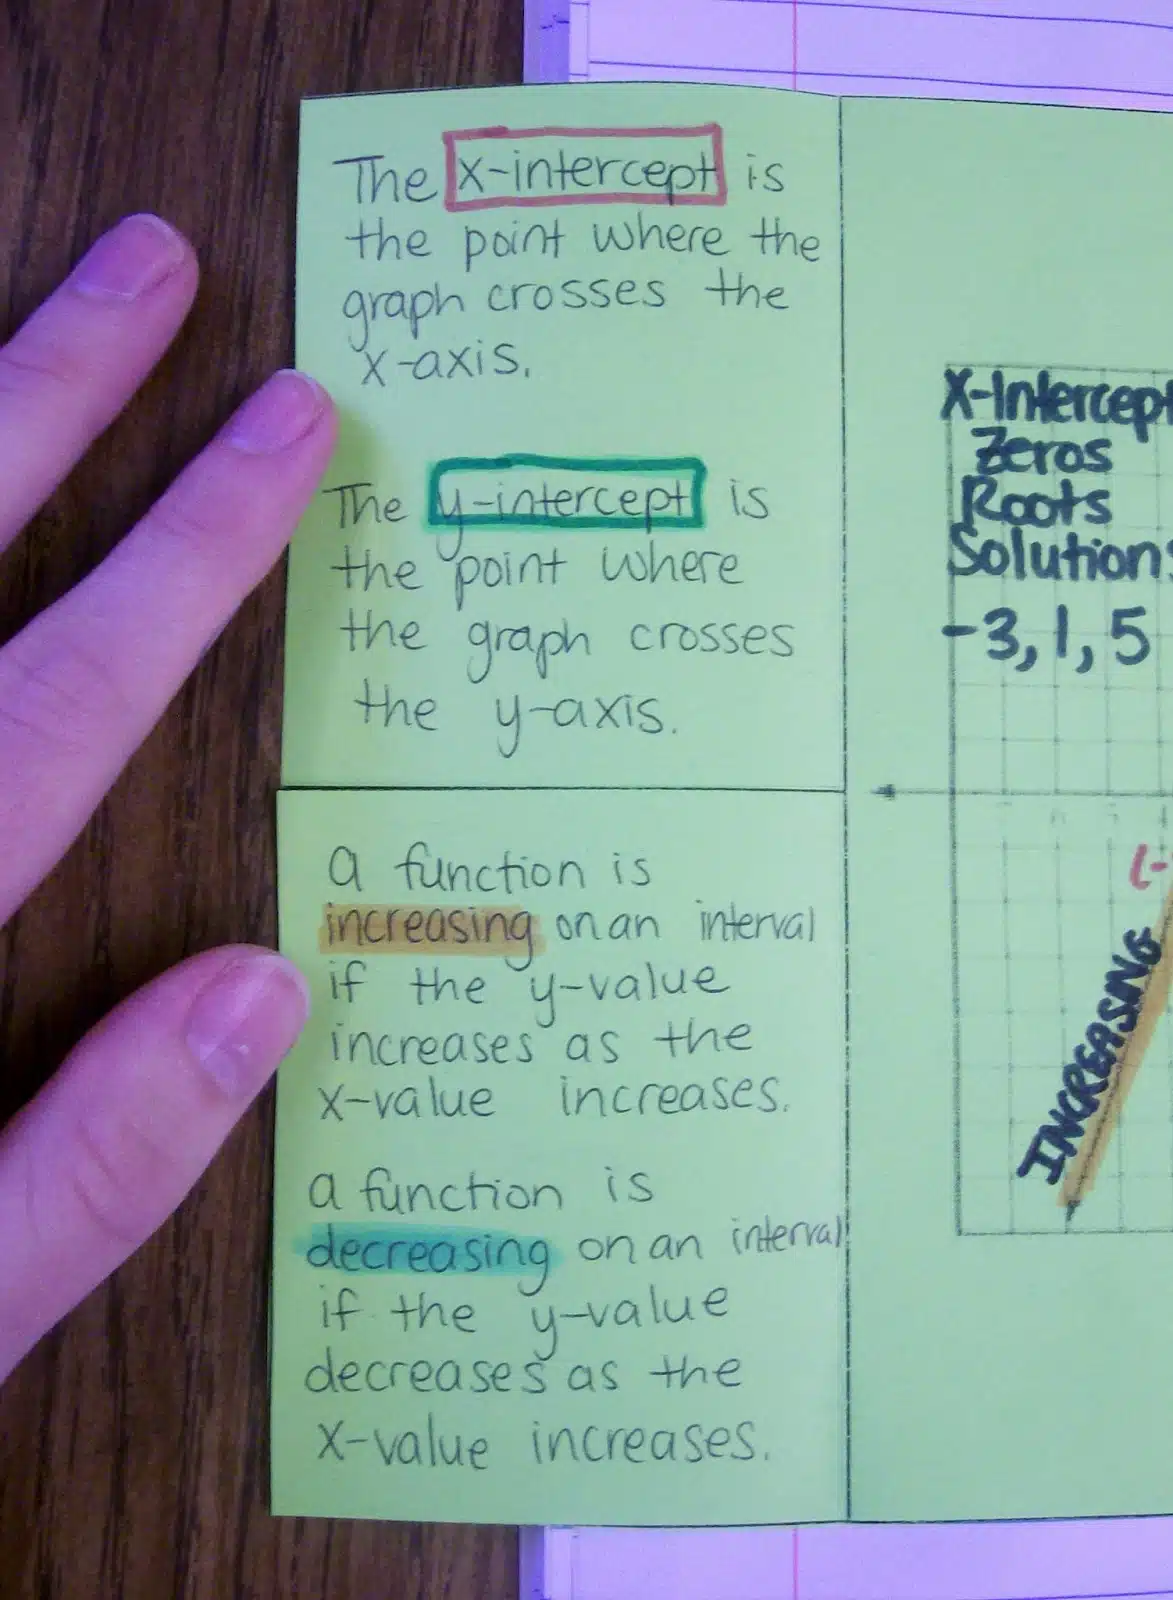 The x-intercept is
the point where the
graph crosses the
x-axis.
The y-intercept is
the point where
the graph crosses
the y-axis.
a function is
increasing on an interval
if the y-value
increases as the
x-value increases.
a function is
decreasing on an interval
if the y-value
decreases as the
x-value increases.
X-Intercept
Zeros
Roots
Solutions
-3, 1, 5
(-
INCREASING